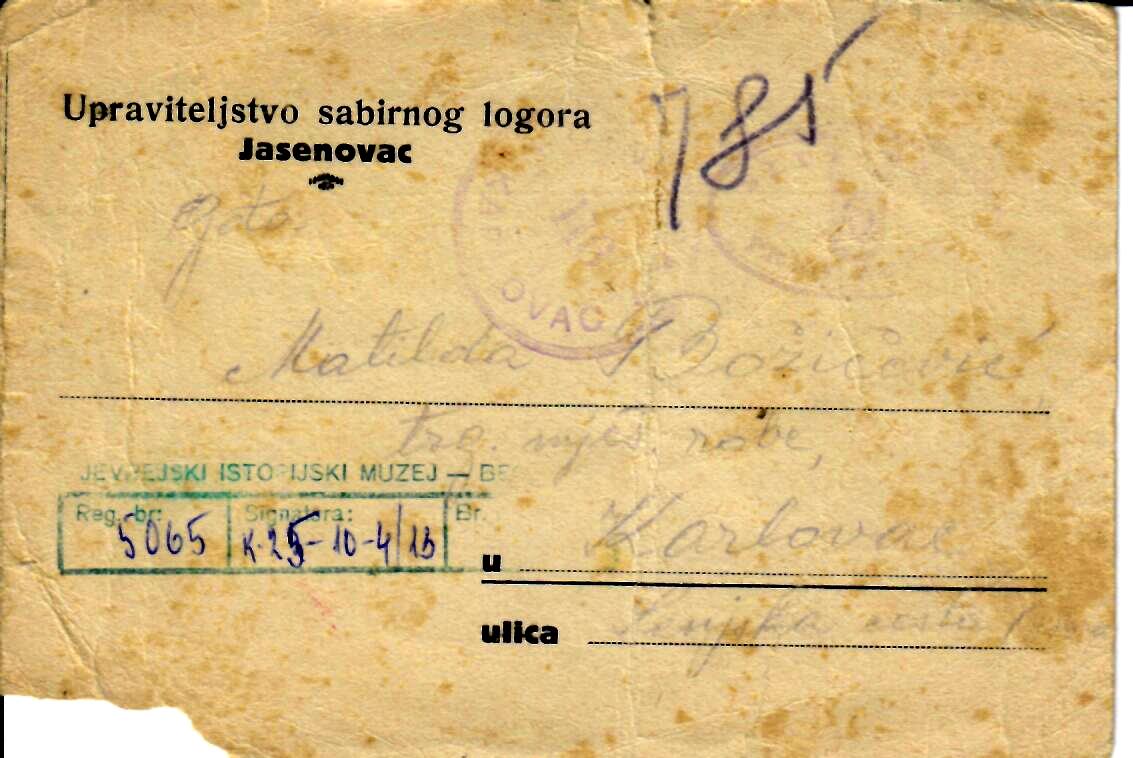 785
Upraviteljstvo sabirnog logora
Jasenovac
OVAC
Matilda Božičević
trg. mješ. robe,
JEVREJSKI ISTORIJSKI MUZEJ — BE
Reg. br: Signatura: Br.
5065 K.25-10-4/13
u Karlovac
ulica Senjska cesta